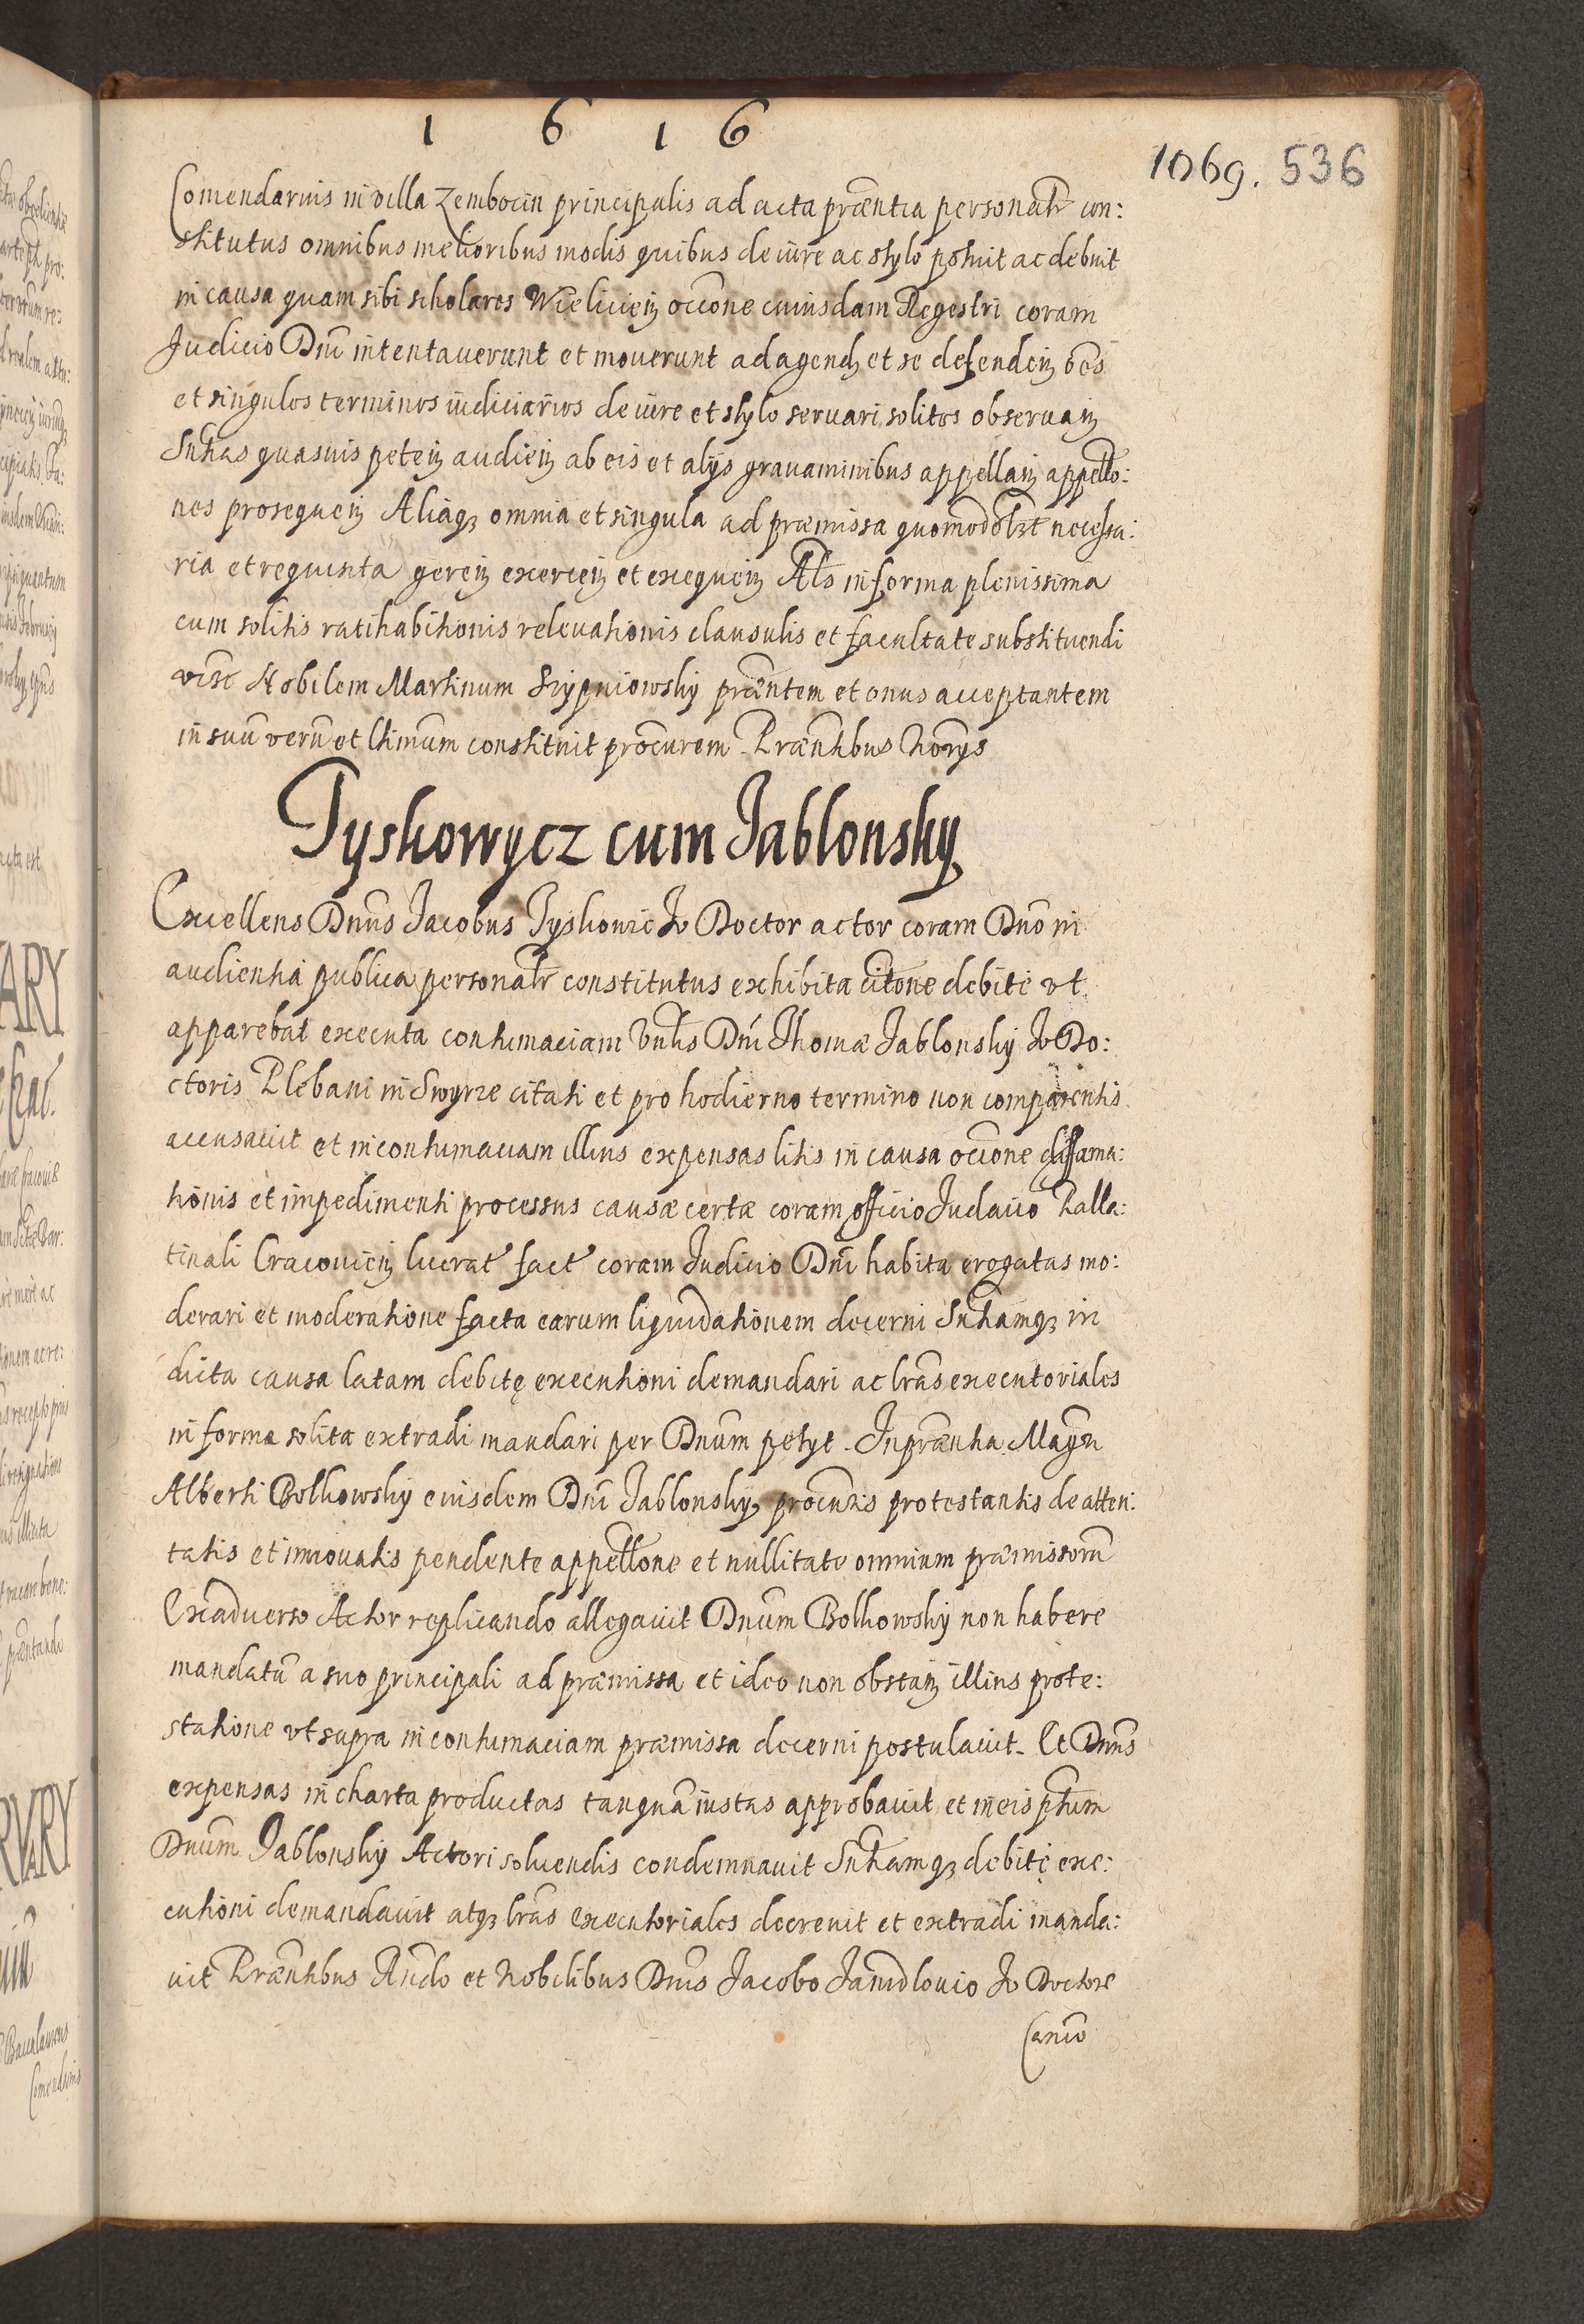 1 6 1 6
1069. 536
Comendarius in villa Zembocin principalis ad acta præntia personalr con:
stitutus omnibus melioribus modis quibus de iure ac stylo potuit ac debuit
in causa quam sibi scholares Wielicien occone cuiusdam Regestri coram
Judicio Dni intentaverunt et moverunt ad agend et se defenden oes
et singulos terminos iudiciarios de iure et stylo servari solitos observan
Sntias quasuis peten audien ab eis et alÿs gravaminibus appellan appello:
nes prosequen Aliaq omnia et singula ad præmissa quomodolzt necessa:
ria et requisita geren exercen et exequen Als in forma plenissima
cum solitis ratihabitionis relevationis clausulis et facultate substituendi
Nobilem Martinum Srzypniowsky præntem et onus acceptantem
in suu veru et ltimum constituit procurem Præntibus Norÿs
Tyskowycz cum Jablonsky
Excellens Dnus Jacobus Tyskowic Jv Doctor actor coram Dno in
audientia publica personalr constitutus exhibita citone debite vt
apparebat executa contumaciam Vnlis Dni Thomæ Jablonsky Jv Do:
ctoris Plebani in Swyrze citati et pro hodierno termino non comparentis
accusavit et in contumaciam illius expensas litis in causa occone diffama:
tionis et impedimenti processus causæ certæ coram officio Judaico Palla:
tinali Cracovien lucrat fact coram Judicio Dni habita erogatas mo:
derari et moderatione facta earum liquidationem decerni Sntiamq in
dicta causa latam debitę executioni demandari ac lras executoriales
in forma solita extradi mandari per Dnum petyt. In præntia Magn
Alberti Bolkowsky eiusdem Dni Jablonsky procuris protestantis de atten:
tatis et innovatis pendente appellone et nullitate omnium præmissoru
Ex adverso Actor replicando allegavit Dnum Bolkowsky non habere
mandatu a suo principali ad præmissa et ideo non obstan illius prote:
statione vt supra in contumaciam præmissa decerni postulavit. Et Dnus
expensas in charta productas tanqua iustas approbavit et in eis ptum
Dnum Jablonsky Actori solvendis condemnavit Sntiamq debitę exe:
cutioni demandavit atq lras executoriales decrevit et extradi manda:
vit Præntibus Andо et Nobilibus Dnis Jacobo Janidlovio Jv Doctore
Canco